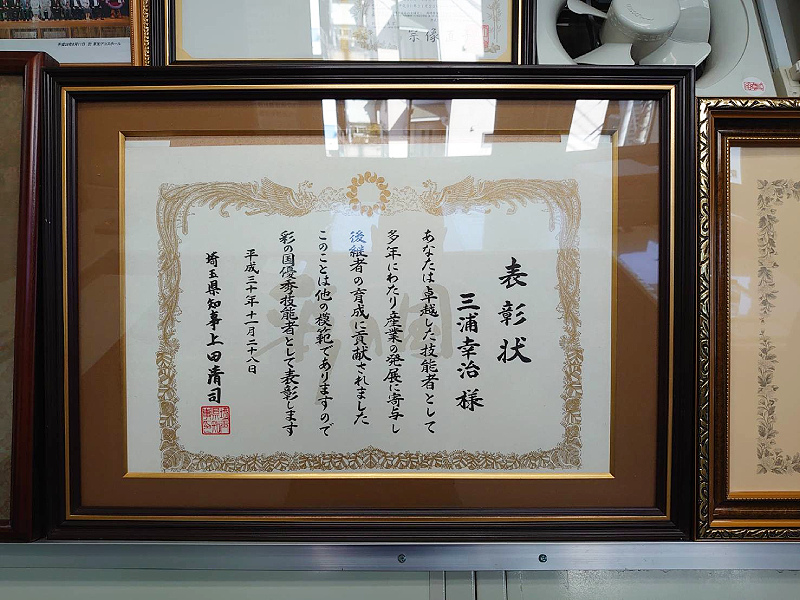 表彰状
三浦幸治 様
あなたは卓越した技能者として
多年にわたり産業の発展に寄与し
後継者の育成に貢献されました
このことは他の模範でありますので
彩の国優秀技能者として表彰します
平成三十年十一月二十八日
埼玉県知事上田清司